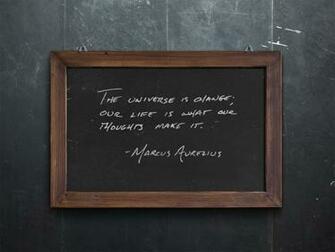 THE UNIVERSE IS CHANGE;
OUR LIFE IS WHAT OUR
THOUGHTS MAKE IT.
-MARCUS AURELIUS